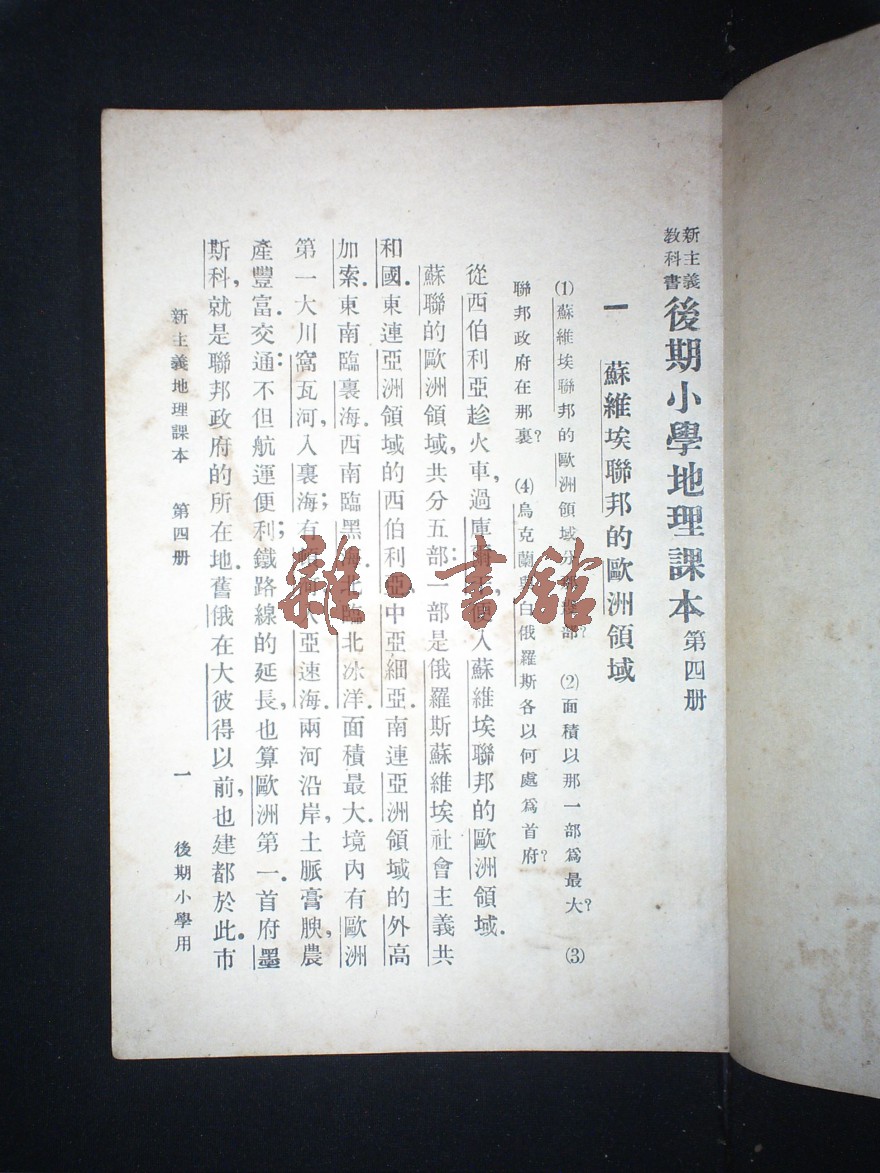 新主義
教科書
後期小學地理課本 第四册
一 蘇維埃聯邦的歐洲領域
(1)蘇維埃聯邦的歐洲領域分 部? (2)面積以那一部爲最大? (3)
聯邦政府在那裏? (4)烏克蘭與白俄羅斯各以何處爲首府?
從西伯利亞趁火車,過庫 入蘇維埃聯邦的歐洲領域.
蘇聯的歐洲領域,共分五部:一部是俄羅斯蘇維埃社會主義共
和國.東連亞洲領域的西伯利亞、中亞細亞.南連亞洲領域的外高
加索.東南臨裏海.西南臨黑海.北臨北冰洋.面積最大.境內有歐洲
第一大川窩瓦河,入裏海;有 亞速海.兩河沿岸,土脈膏腴,農
產豐富.交通:不但航運便利;鐵路線的延長,也算歐洲第一.首府墨
斯科,就是聯邦政府的所在地.舊俄在大彼得以前,也建都於此.市
新主義地理課本 第四册 一 後期小學用
雜·書館